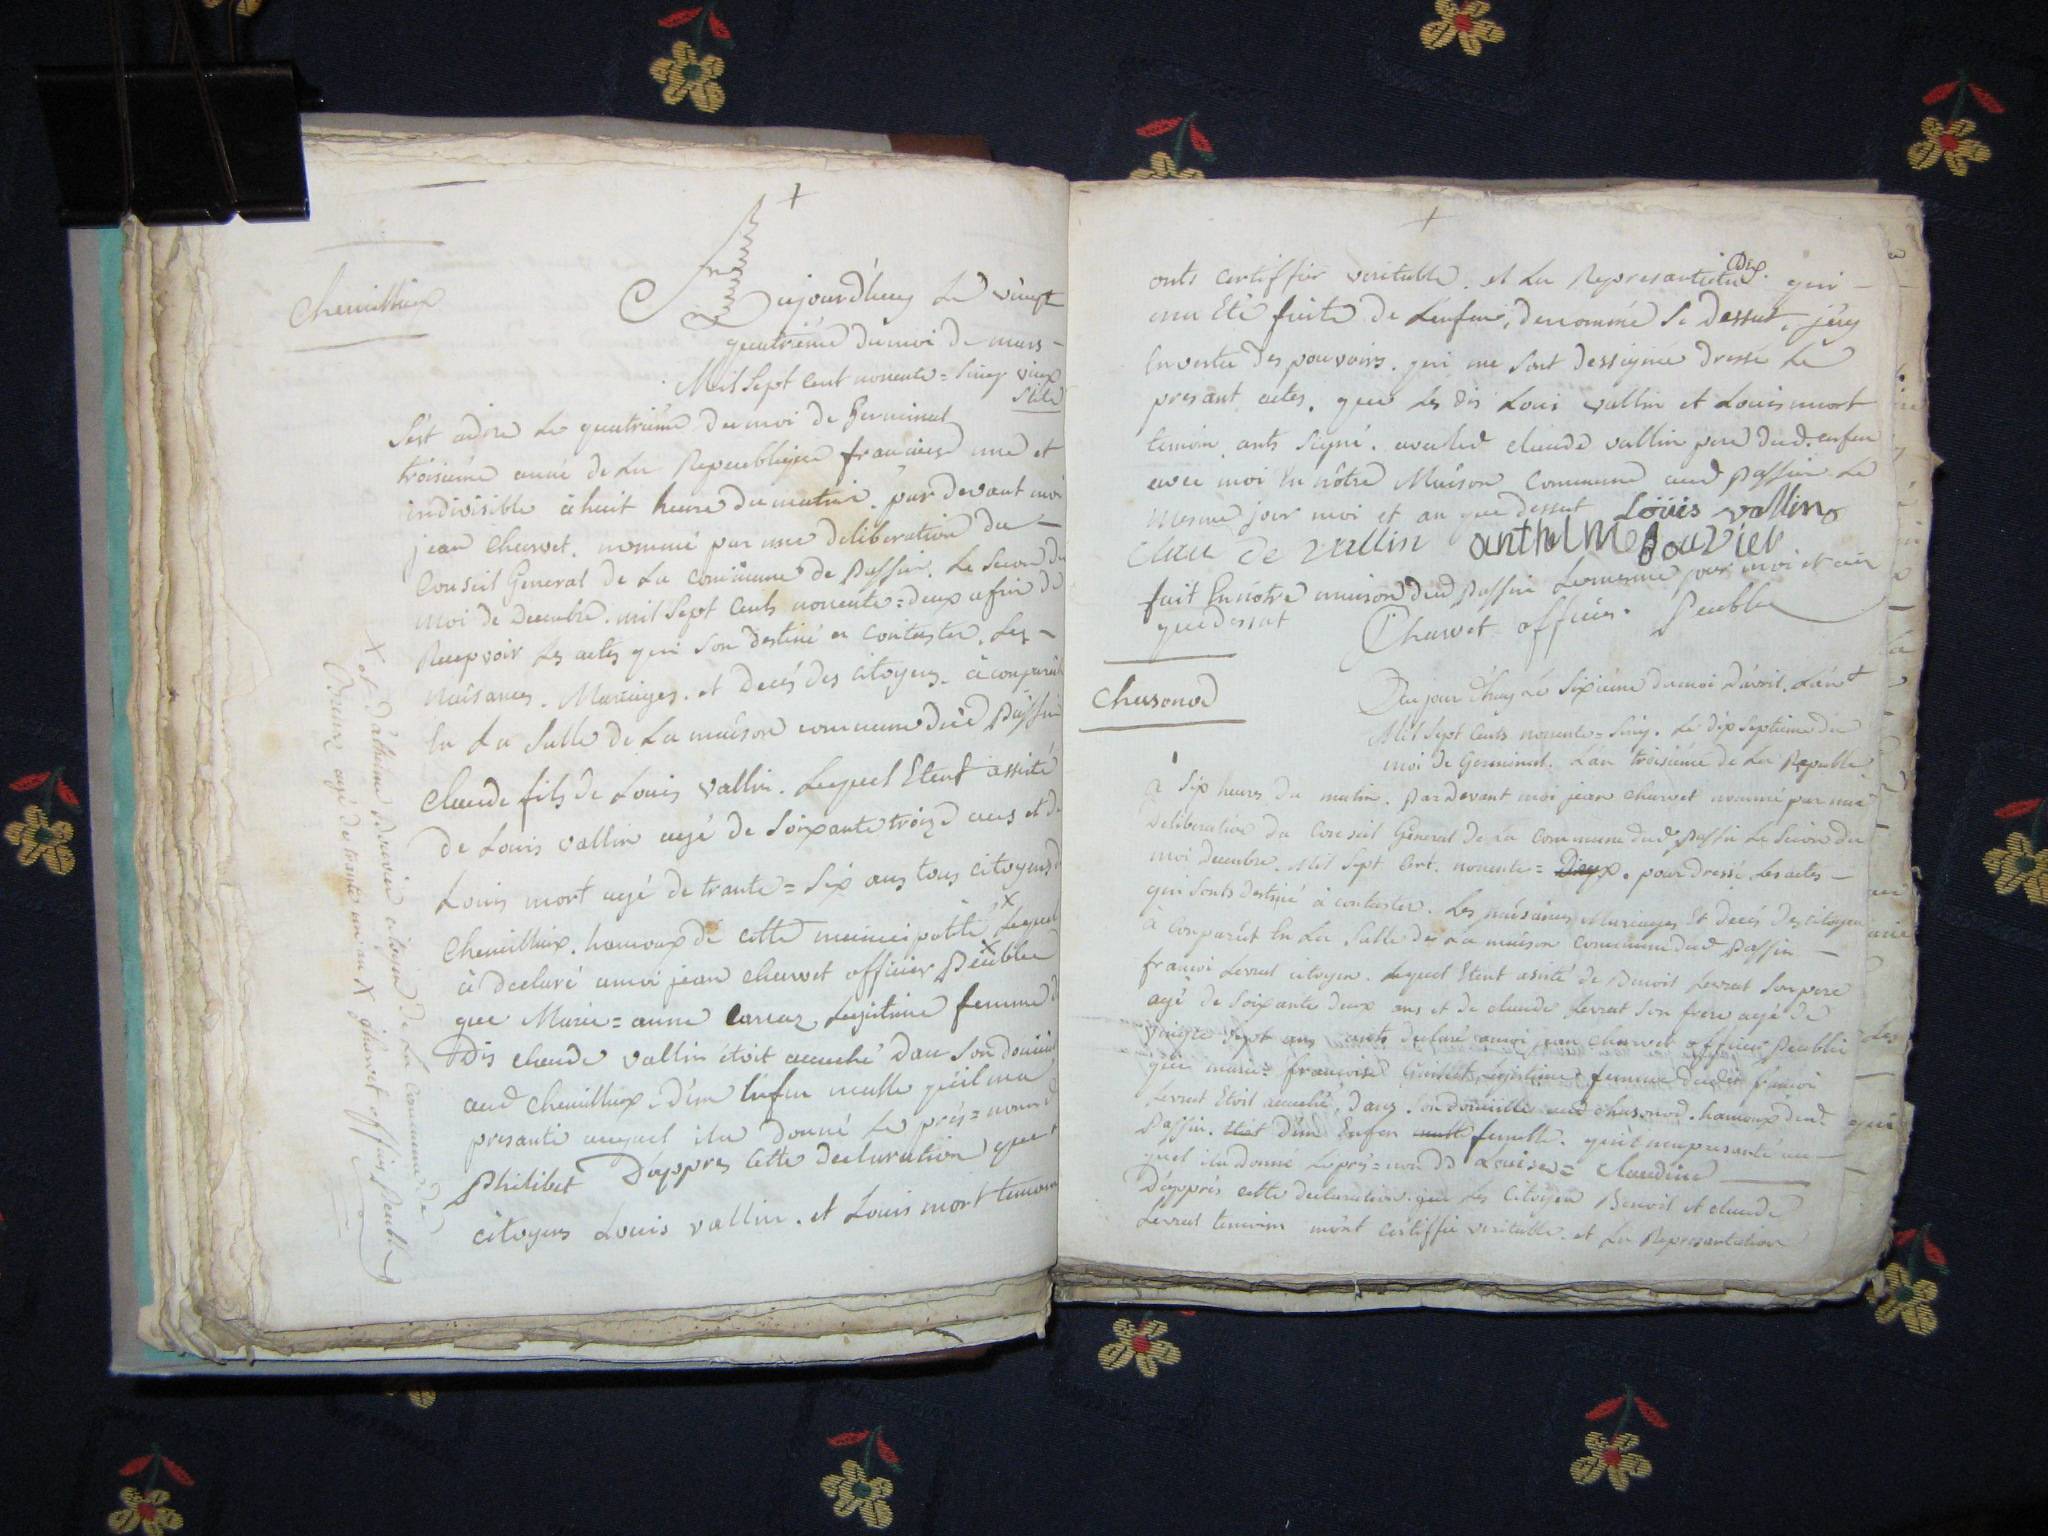 Chemillieux
Aujourd'huy Le vingt
quatriéme du moi de mars
Mil Sept Cent nonente = Sinq vieux
Stile
S'est adire Le quatriéme du moi de Germinal
troisiéme anné de La Republique francaise une et
indivisible à huit heure du matin. par devant moi
jean Charvet. nommé par une deliberation du
Conseil General de La commune de Passin. Le Secon du
moi de Decembre. mil Sept Cents nonente = deux afin de
Recepvoir Les actes qui Son destiné a Contaster. Les
naisances. Mariages. et decés des Citoyens. à comparut
En La Salle de La maison commune dud Passin
Claude fils de Louis vallin. Lequel Etent assisté
de Louis vallin agé de Soixante troize ans et de
Louis mort agé de trante = Six ans tous citoyens
Chemillieux. hamaux de cette municipalité X Lequel
à declaré amoi jean Charvet officier Peublic
que Marie = anne Legitime femme
Dis claude vallin étoit acuché Dan Son domicile
aud Chemillieux. D'un Enfan malle qu'il ma
presanté auquel ila donné Le prés = nom
Philibet D'appres Cette declaration que
citoyens Louis vallin. et Louis mort temoin
X et D'athelme Bouvier citoyen de La Commune de
agé de trante un an X Charvet officier Peublic
onts certiffier veritable. et La Representation qui
ma Eté faite de L'enfan, denommé Si Dessut, j'ey
En vertu des pouvoirs. qui me Sont dessigné dressé Le
presant actes. que Les dis Louis vallin et Louis mort
temoin onts Signé. avaled claude vallin pere dud. enfan
avec moi En nôtre Maison Commune aud Passin Le
mesme jour moi et an que dessut Louis vallin
Clau de vallin anthelme Bouvier
fait En nôtre maison dud Passin Lemesme jour moi et an
que dessut Charvet officier. Peublic
Chasonod
Au jour d'huy Le Sixiéme du moi D'avril. L'an
Mil Sept Cents nonente = Sinq. Le dix Septieme du
moi de Germinal. L'an troisiéme de La Republi
à Six heures du matin. Par devant moi jean Charvet nommé par une
Deliberation du Conseil Géneral de La Commune dud Passin Le Secon du
moi decembre. Mil Sept Cent. nonente = Deux. pour dressé Les actes
qui Sonts destiné à contaster. Les naisances Mariages Et decés des citoyen
à Comparût En La Salle de La maison Commune dud Passin
francoi Levrat citoyen. Lequel Etent asisté de Benoit Levrat Son pere
agé de Soixante deux ans et de claude Levrat Son frere agé de
vingte Sept ans onts declaré amoi jean Charvet officier Peublic
que marie = francoise Legitime femme dudit francoi
Levrat Etoit acuché, Dans Son domicille aud Chasonod. hamaux dud.
Passin. Etoit D'une Enfan malle femelle. qu'il ma presanté au
quel ila donné Leprés = nom de Louise = Claudine
D'apprés cette declaration. que Les Citoyen Benoit et claude
Levrat temoin m'ont Certiffié veritable. et La Representation